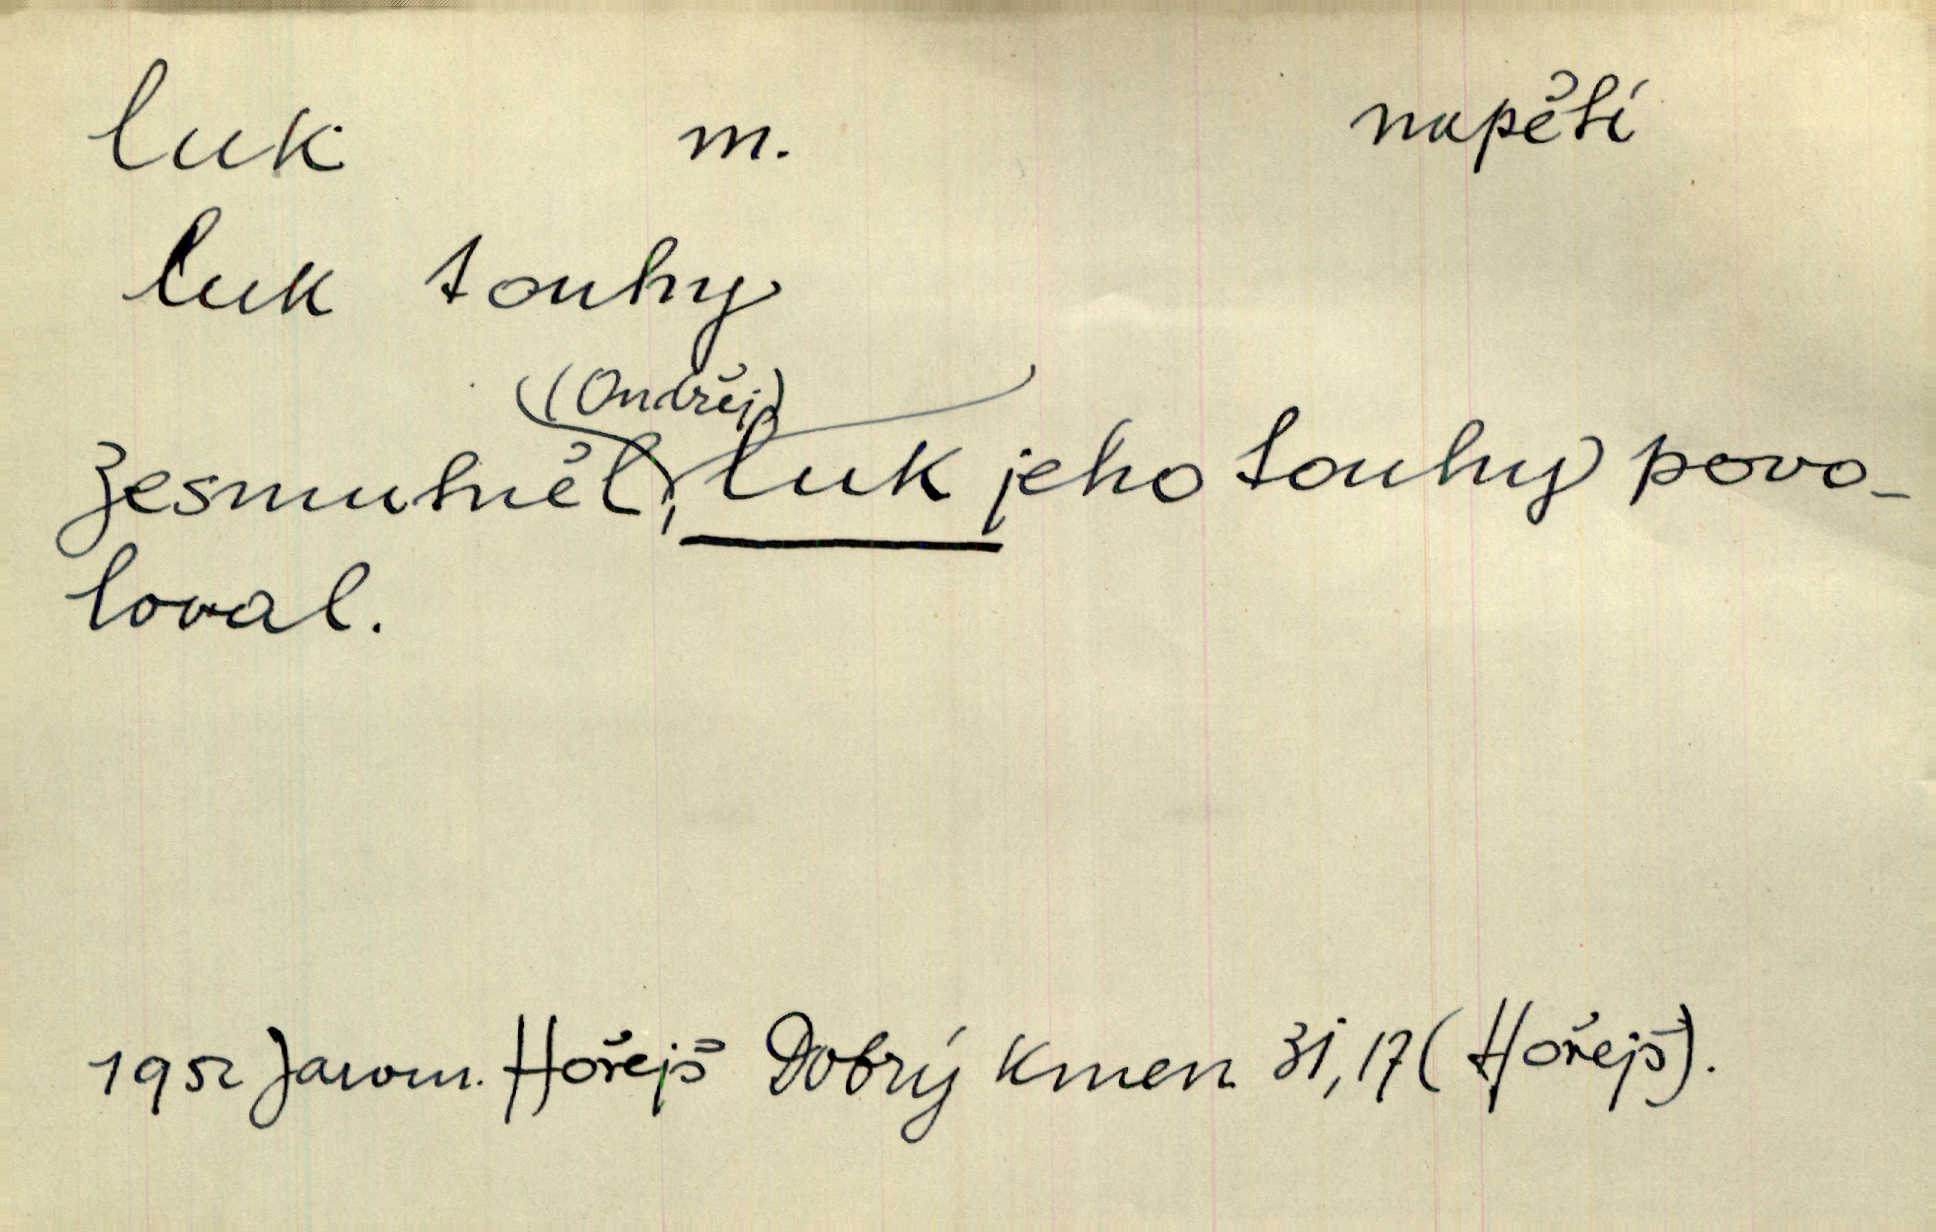 luk m. napětí
luk touhy
(Ondřej)
zesmutněl, luk jeho touhy povo-
loval.
1952 Jarom. Hořejš Dobrý kmen 31,17 (Hořejš).